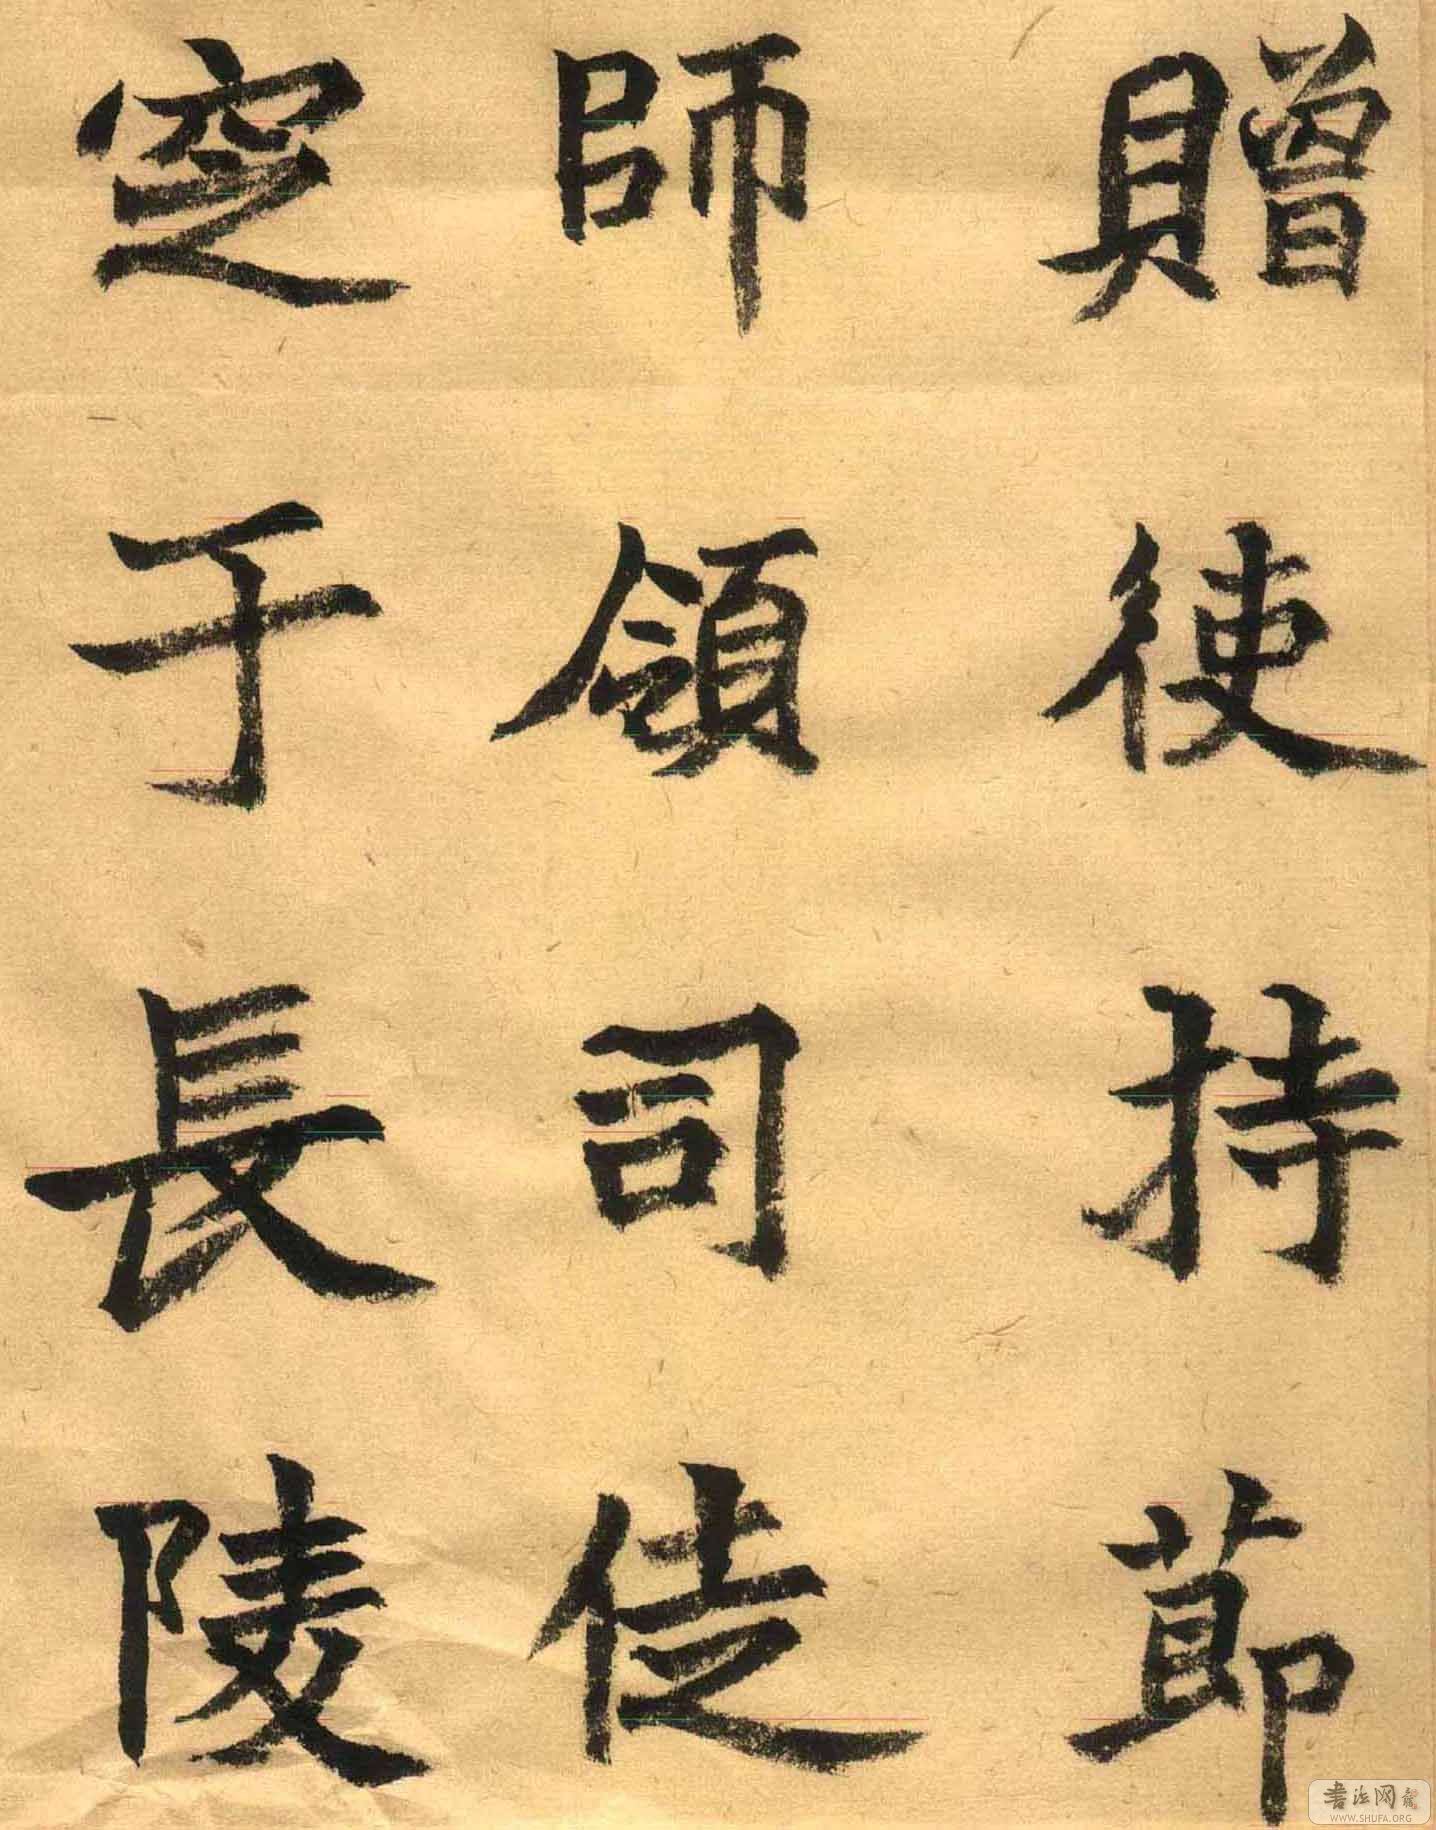 贈使持節
師領司徒
窆于長陵
書法网
WWW.SHUFA.ORG